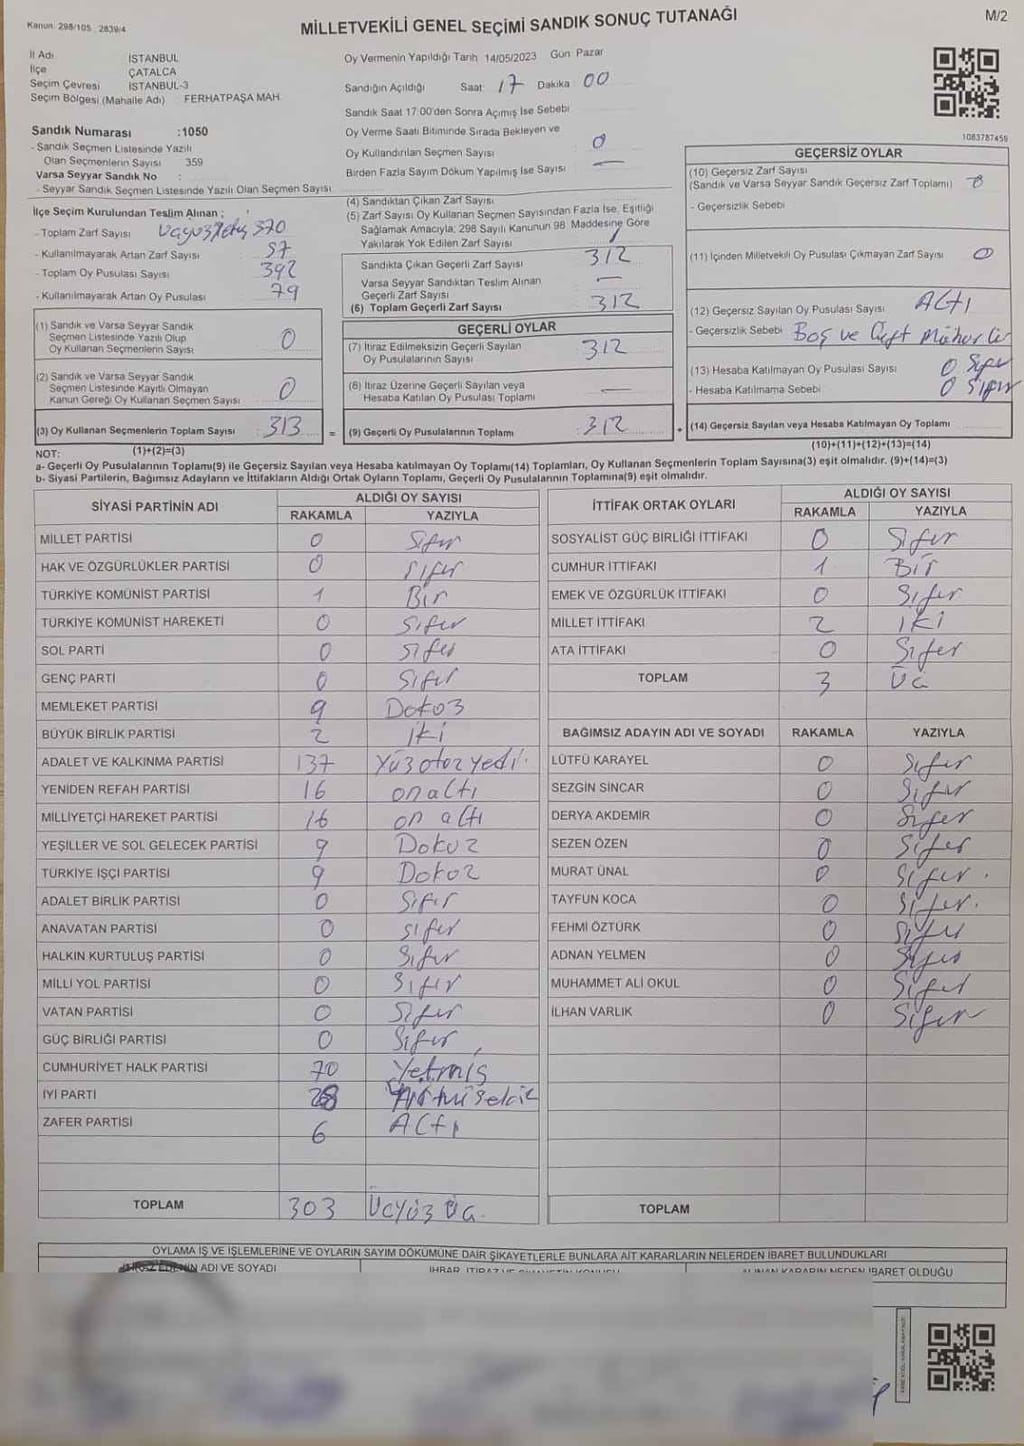 Kanun: 298/105 , 2839/4
MİLLETVEKİLİ GENEL SEÇİMİ SANDIK SONUÇ TUTANAĞI
M/2
İl Adı İSTANBUL
İlçe ÇATALCA
Seçim Çevresi İSTANBUL-3
Seçim Bölgesi (Mahalle Adı) FERHATPAŞA MAH.
Sandık Numarası :1050
- Sandık Seçmen Listesinde Yazılı
Olan Seçmenlerin Sayısı 359
Varsa Seyyar Sandık No :
- Seyyar Sandık Seçmen Listesinde Yazılı Olan Seçmen Sayısı
Oy Vermenin Yapıldığı Tarih 14/05/2023 Gün Pazar
Sandığın Açıldığı Saat 17 Dakika 00
Sandık Saat 17:00'den Sonra Açımış İse Sebebi
Oy Verme Saati Bitiminde Sırada Bekleyen ve
Oy Kullandırılan Seçmen Sayısı 0
Birden Fazla Sayım Döküm Yapılmış İse Sayısı —
1083787459
İlçe Seçim Kurulundan Teslim Alınan ;
- Toplam Zarf Sayısı 370
- Kullanılmayarak Artan Zarf Sayısı 57
- Toplam Oy Pusulası Sayısı 392
- Kullanılmayarak Artan Oy Pusulası 79
(1) Sandık ve Varsa Seyyar Sandık
Seçmen Listesinde Yazılı Olup
Oy Kullanan Seçmenlerin Sayısı 0
(2) Sandık ve Varsa Seyyar Sandık
Seçmen Listesinde Kayıtlı Olmayan
Kanun Gereği Oy Kullanan Seçmen Sayısı 0
(3) Oy Kullanan Seçmenlerin Toplam Sayısı 313 =
(1)+(2)=(3)
(4) Sandıktan Çıkan Zarf Sayısı
(5) Zarf Sayısı Oy Kullanan Seçmen Sayısından Fazla İse, Eşitliği
Sağlamak Amacıyla, 298 Sayılı Kanunun 98 Maddesine Göre
Yakılarak Yok Edilen Zarf Sayısı
Sandıkta Çıkan Geçerli Zarf Sayısı 312
Varsa Seyyar Sandıktan Teslim Alınan
Geçerli Zarf Sayısı —
(6) Toplam Geçerli Zarf Sayısı 312
GEÇERLİ OYLAR
(7) İtiraz Edilmeksizin Geçerli Sayılan
Oy Pusulalarının Sayısı 312
(8) İtiraz Üzerine Geçerli Sayılan veya
Hesaba Katılan Oy Pusulası Toplamı —
(9) Geçerli Oy Pusulalarının Toplamı 312 +
GEÇERSİZ OYLAR
(10) Geçersiz Zarf Sayısı
(Sandık ve Varsa Seyyar Sandık Geçersiz Zarf Toplamı) 0
- Geçersizlik Sebebi
(11) İçinden Milletvekili Oy Pusulası Çıkmayan Zarf Sayısı 0
(12) Geçersiz Sayılan Oy Pusulası Sayısı Altı
- Geçersizlik Sebebi Boş ve Çift
(13) Hesaba Katılmayan Oy Pusulası Sayısı 0 Sıfır
- Hesaba Katılmama Sebebi 0 Sıfır
(14) Geçersiz Sayılan veya Hesaba Katılmayan Oy Toplamı
(10)+(11)+(12)+(13)=(14)
NOT:
a- Geçerli Oy Pusulalarının Toplamı(9) ile Geçersiz Sayılan veya Hesaba katılmayan Oy Toplamı(14) Toplamları, Oy Kullanan Seçmenlerin Toplam Sayısına(3) eşit olmalıdır. (9)+(14)=(3)
b- Siyasi Partilerin, Bağımsız Adayların ve İttifakların Aldığı Ortak Oyların Toplamı, Geçerli Oy Pusulalarının Toplamına(9) eşit olmalıdır.
SİYASİ PARTİNİN ADI ALDIĞI OY SAYISI
RAKAMLA YAZIYLA
MİLLET PARTİSİ 0 Sıfır
HAK VE ÖZGÜRLÜKLER PARTİSİ 0 Sıfır
TÜRKİYE KOMÜNİST PARTİSİ 1 Bir
TÜRKİYE KOMÜNİST HAREKETİ 0 Sıfır
SOL PARTİ 0 Sıfır
GENÇ PARTİ 0 Sıfır
MEMLEKET PARTİSİ 9 Dokoz
BÜYÜK BİRLİK PARTİSİ 2 iki
ADALET VE KALKINMA PARTİSİ 137 Yüz otoz yedi.
YENİDEN REFAH PARTİSİ 16 on altı
MİLLİYETÇİ HAREKET PARTİSİ 16 on altı
YEŞİLLER VE SOL GELECEK PARTİSİ 9 Dokuz
TÜRKİYE İŞÇİ PARTİSİ 9 Dokoz
ADALET BİRLİK PARTİSİ 0 Sıfır
ANAVATAN PARTİSİ 0 sıfır
HALKIN KURTULUŞ PARTİSİ 0 Sıfır
MİLLİ YOL PARTİSİ 0 Sıfır
VATAN PARTİSİ 0 Sıfır
GÜÇ BİRLİĞİ PARTİSİ 0 Sıfır
CUMHURİYET HALK PARTİSİ 70 Yetmiş
İYİ PARTİ 28
ZAFER PARTİSİ 6 Altı
TOPLAM 303 Üçyüz Üç.
İTTİFAK ORTAK OYLARI ALDIĞI OY SAYISI
RAKAMLA YAZIYLA
SOSYALİST GÜÇ BİRLİĞİ İTTİFAKI 0 Sıfır
CUMHUR İTTİFAKI 1 Bir
EMEK VE ÖZGÜRLÜK İTTİFAKI 0 Sıfır
MİLLET İTTİFAKI 2 iki
ATA İTTİFAKI 0 Sıfır
TOPLAM 3 Üç
BAĞIMSIZ ADAYIN ADI VE SOYADI RAKAMLA YAZIYLA
LÜTFÜ KARAYEL 0 Sıfır
SEZGİN SİNCAR 0 Sıfır
DERYA AKDEMİR 0 Sıfır
SEZEN ÖZEN 0 Sıfır
MURAT ÜNAL 0 Sıfır.
TAYFUN KOCA 0 Sıfır.
FEHMİ ÖZTÜRK 0 Sıfır
ADNAN YELMEN 0 Sıfır
MUHAMMET ALİ OKUL 0 Sıfır
İLHAN VARLIK 0 Sıfır
TOPLAM
OYLAMA İŞ VE İŞLEMLERİNE VE OYLARIN SAYIM DÖKÜMÜNE DAİR ŞİKAYETLERLE BUNLARA AİT KARARLARIN NELERDEN İBARET BULUNDUKLARI
ADI VE SOYADI
ALINAN KARARIN NEDEN İBARET OLDUĞU